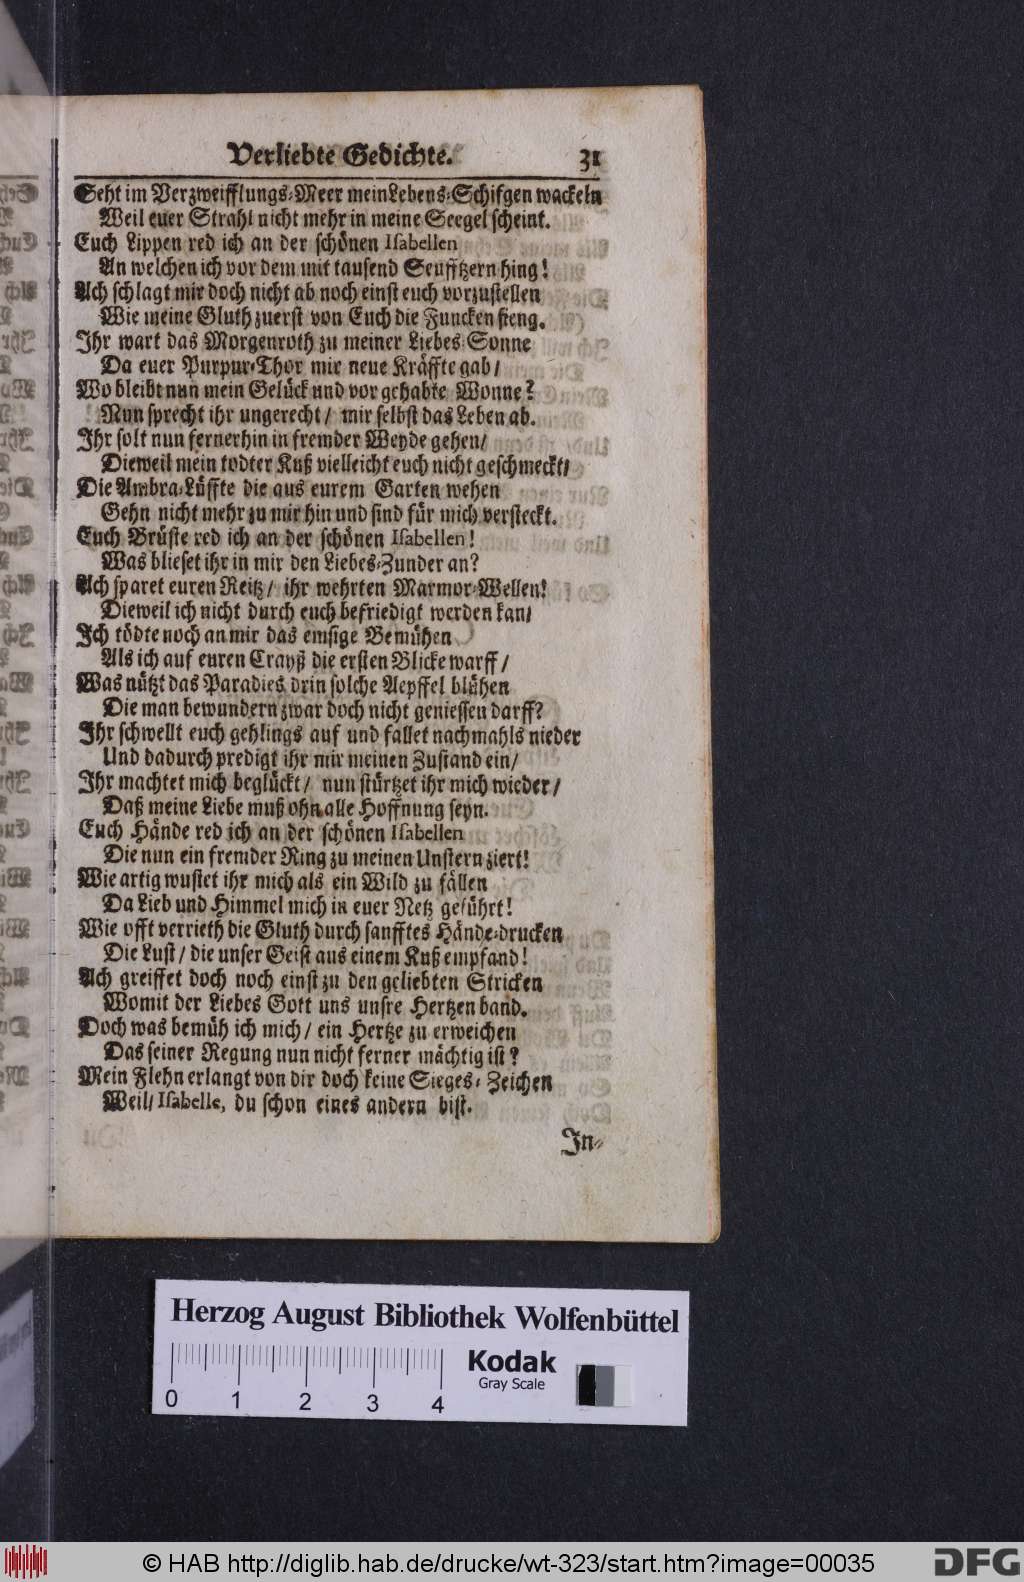 Verliebte Gedichte. 31
Seht im Verzweifflungs-Meer mein Lebens-Schifgen wackeln
Weil euer Strahl nicht mehr in meine Seegel scheint.
Euch Lippen red ich an der schönen Isabellen
An welchen ich vor dem mit tausend Seufftzern hing!
Ach schlagt mir doch nicht ab noch einst euch vorzustellen
Wie meine Gluth zuerst von Euch die Funcken fieng.
Ihr wart das Morgenroth zu meiner Liebes-Sonne
Da euer Purpur-Thor mir neue Kräffte gab/
Wo bleibt nun mein Gelück und vor gehabte Wonne?
Nun sprecht ihr ungerecht/ mir selbst das Leben ab.
Ihr solt nun fernerhin in fremder Weyde gehen/
Dieweil mein todter Kuß vielleicht euch nicht geschmeckt/
Die Ambra-Lüffte die aus eurem Garten wehen
Gehn nicht mehr zu mir hin und sind für mich versteckt.
Euch Brüste red ich an der schönen Isabellen!
Was blieset ihr in mir den Liebes-Zunder an?
Ach sparet euren Reitz/ ihr wehrten Marmor-Wellen!
Dieweil ich nicht durch euch befriedigt werden kan/
Ich tödte noch an mir das emsige Bemühen
Als ich auf euren Crayß die ersten Blicke warff/
Was nützt das Paradies drin solche Aepffel blühen
Die man bewundern zwar doch nicht geniessen darff?
Ihr schwellt euch gehlings auf und fallet nachmahls nieder
Und dadurch predigt ihr mir meinen Zustand ein/
Ihr machtet mich beglückt/ nun stürtzet ihr mich wieder/
Daß meine Liebe muß ohn alle Hoffnung seyn.
Euch Hände red ich an der schönen Isabellen
Die nun ein fremder Ring zu meinen Unstern ziert!
Wie artig wustet ihr mich als ein Wild zu fällen
Da Lieb und Himmel mich in euer Netz geführt!
Wie offt verrieth die Gluth durch sanfftes Hände-drucken
Die Lust/ die unser Geist aus einem Kuß empfand!
Ach greiffet doch noch einst zu den geliebten Stricken
Womit der Liebes Gott uns unsre Hertzen band.
Doch was bemüh ich mich/ ein Hertze zu erweichen
Das seiner Regung nun nicht ferner mächtig ist?
Mein Flehn erlangt von dir doch keine Sieges-Zeichen
Weil/ Isabelle, du schon eines andern bist.
In-
Herzog August Bibliothek Wolfenbüttel
Kodak
Gray Scale
0 1 2 3 4
© HAB http://diglib.hab.de/drucke/wt-323/start.htm?image=00035
DFG